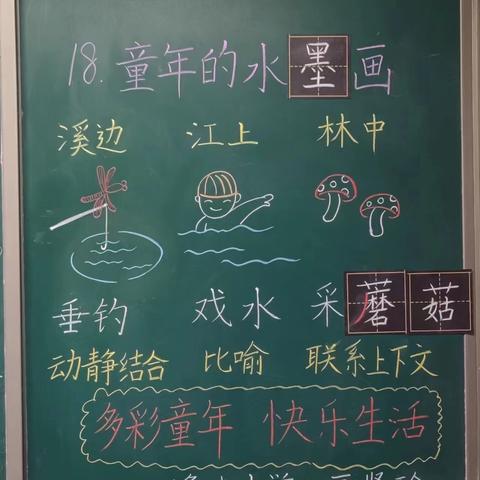 18.童年的水墨画
溪边 江上 林中
垂钓 戏水 采蘑菇
动静结合 比喻 联系上下文
多彩童年 快乐生活